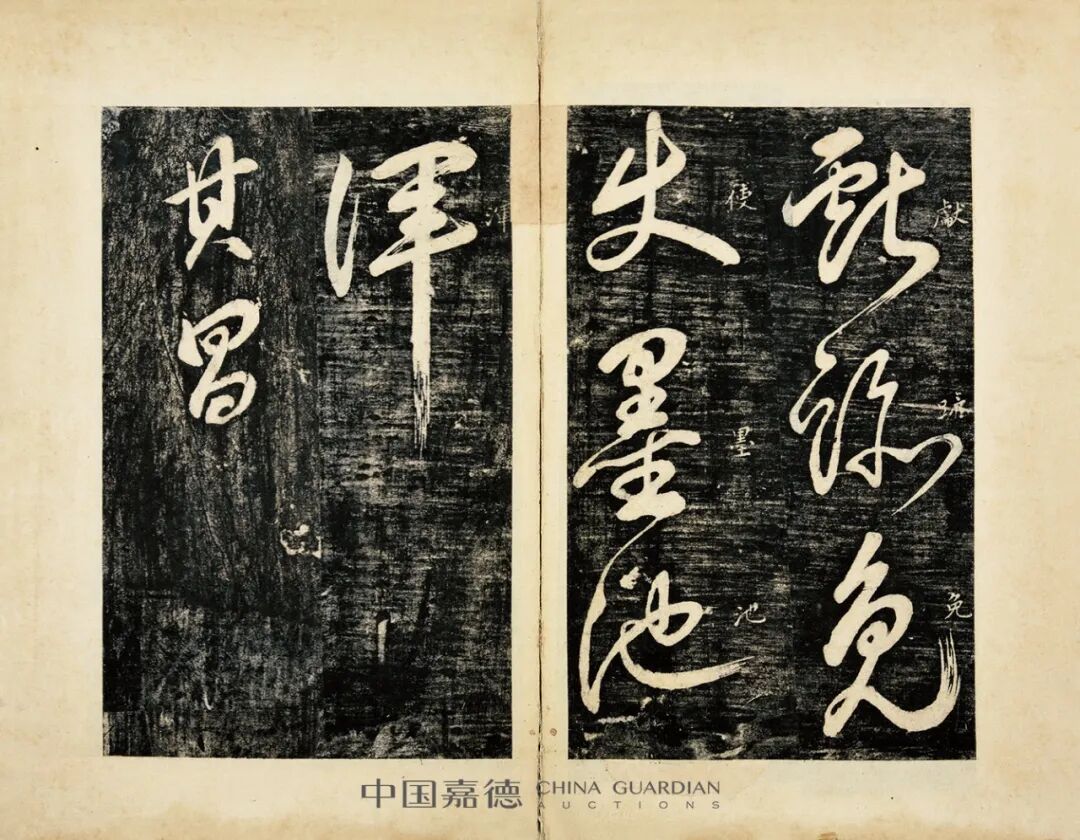 獻免
獻
免
使墨池
使
墨
池
渾
渾
其昌
中国嘉德 CHINA GUARDIAN
AUCTIONS